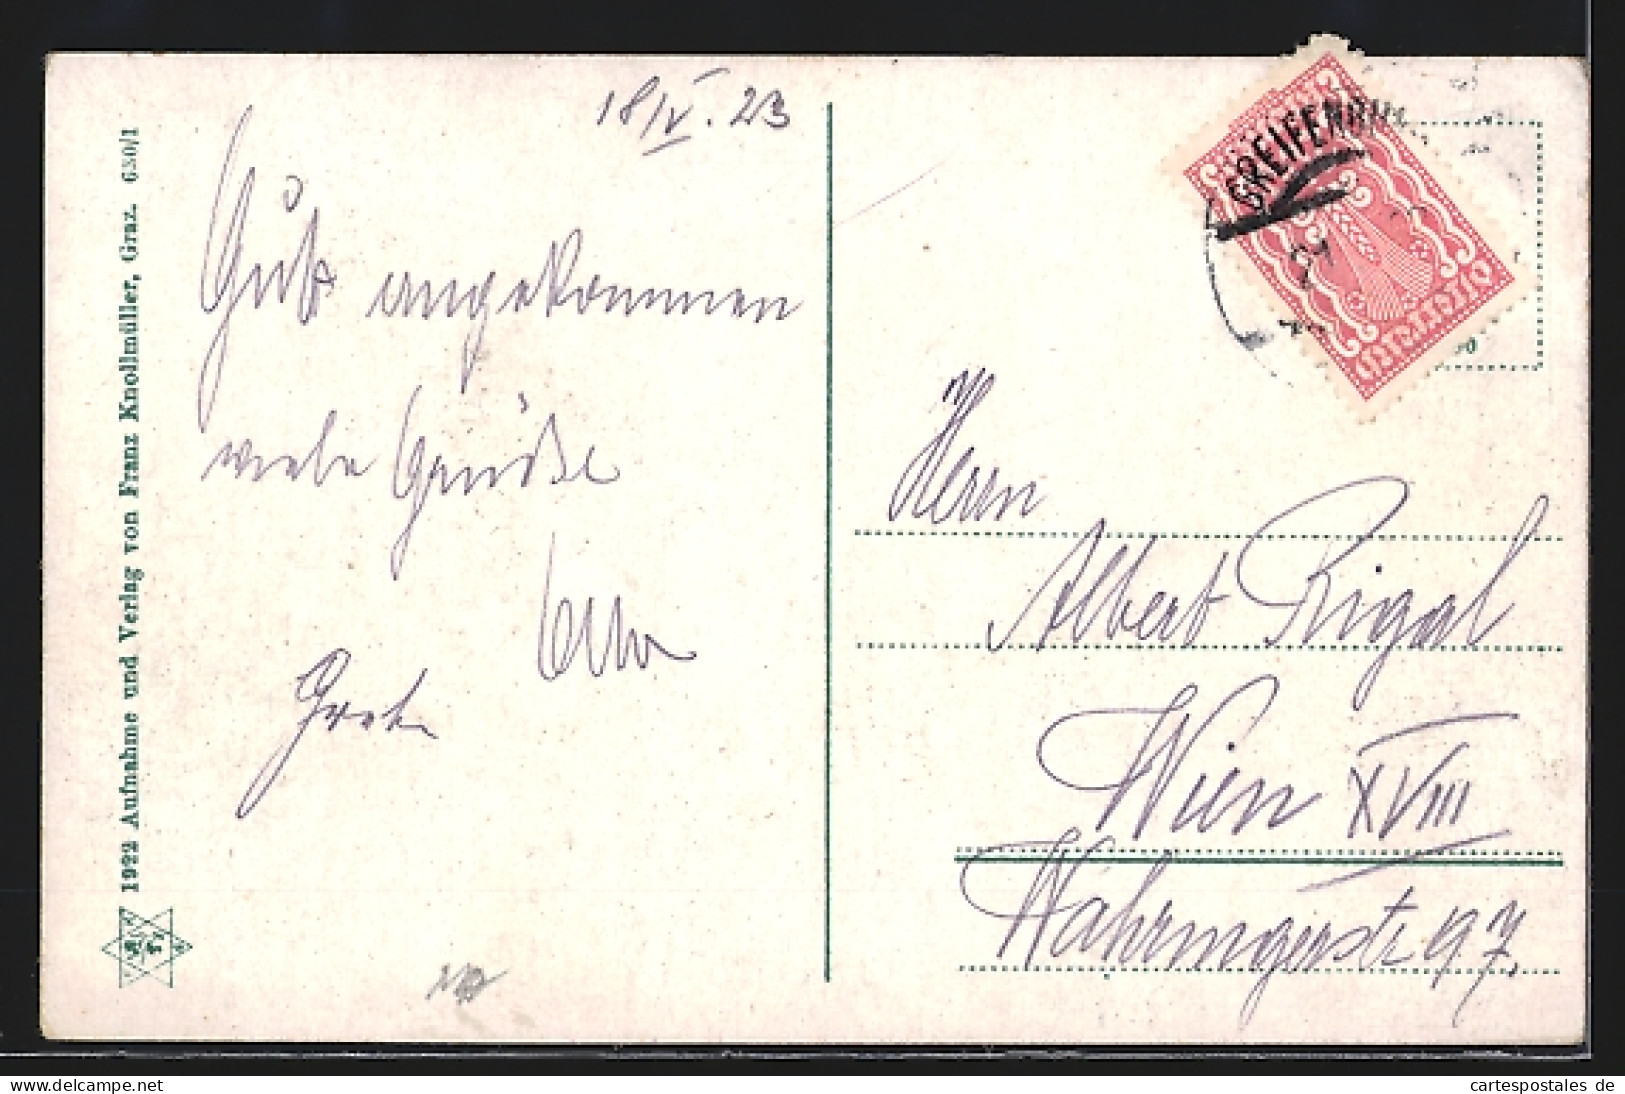 18/V. 23
Gut angekommen
viele Grüße
Otto
Grete
1922 Aufnahme und Verlag von Franz Knollmüller, Graz. 630/1
GREIFENBURG
Herrn
Albert Rigal
Wien XVIII
Währingerstr. 97.
delcampe.net
cartespostales de